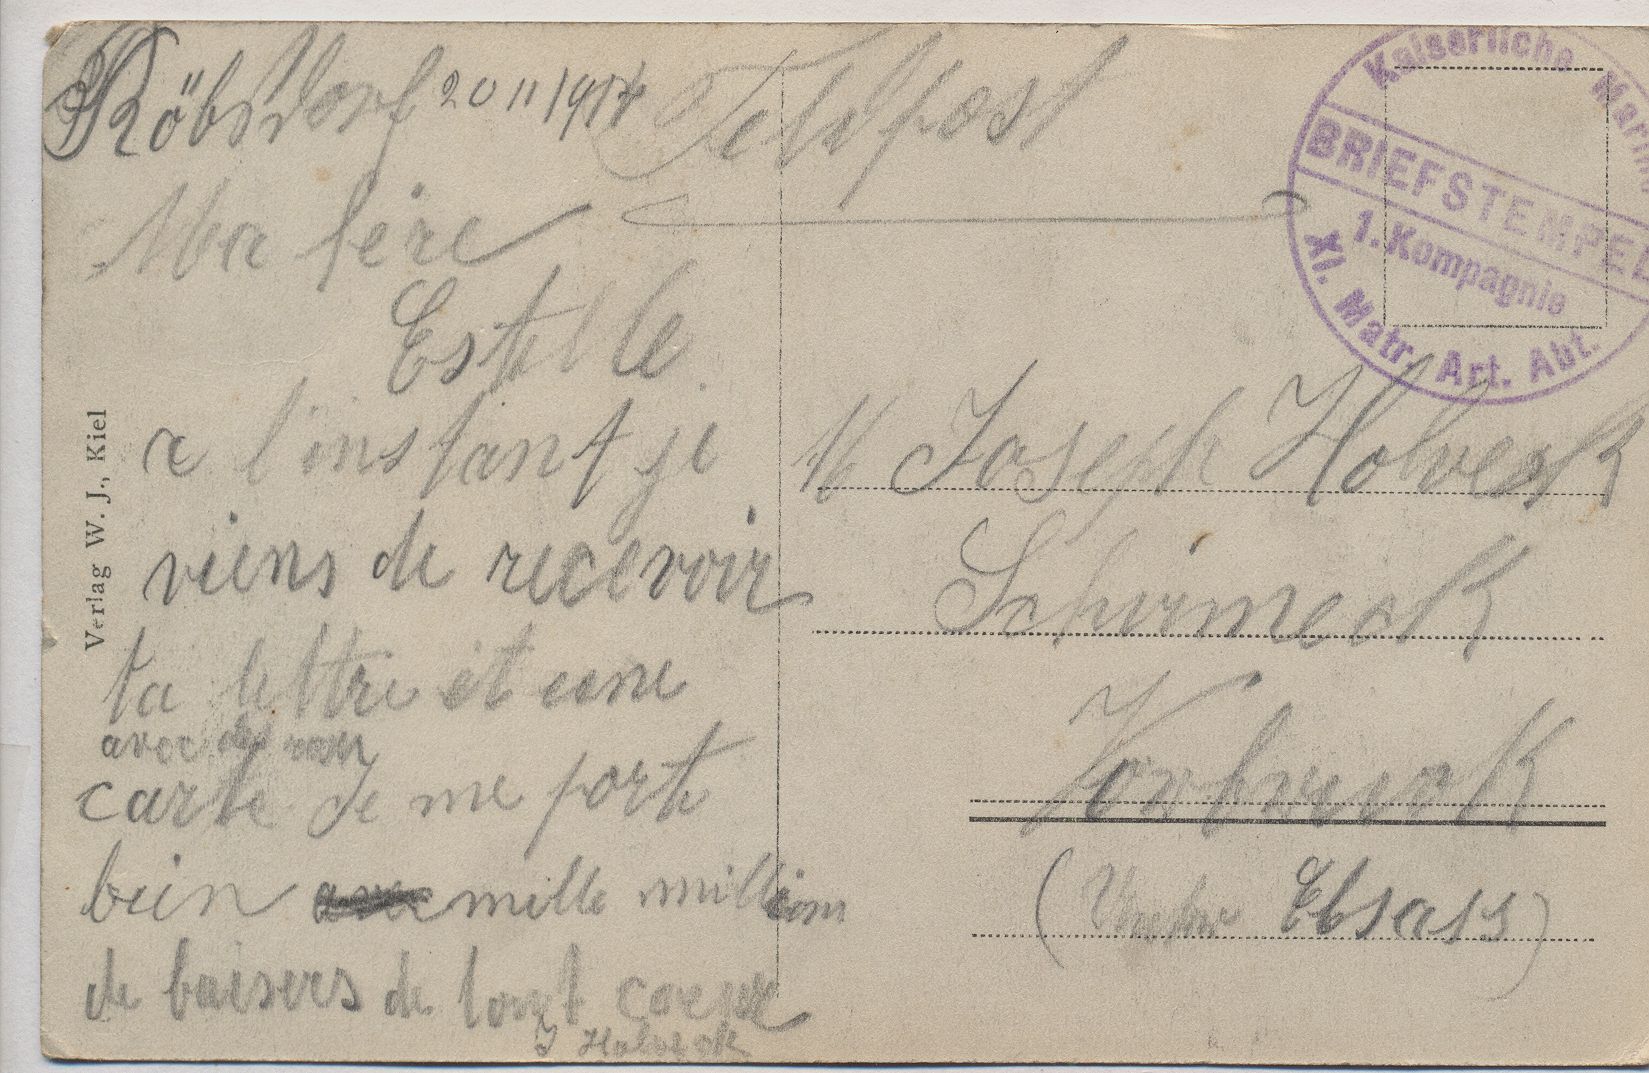 Röbsdorf 20 11 1914
Feldpost
Kaiserliche Marin
BRIEFSTEMPEL
1. Kompagnie
XI. Matr. Art. Abt.
Ma
Estelle.
a l'instant je
viens de recevoir
ta lettre et une
avec
carte Je me porte
bien mille million
de baisers de tout coeur
J Holveck
M Joseph Holveck
Schirmeck
Vorbruck
(Unter Elsass)
Verlag W. J., Kiel